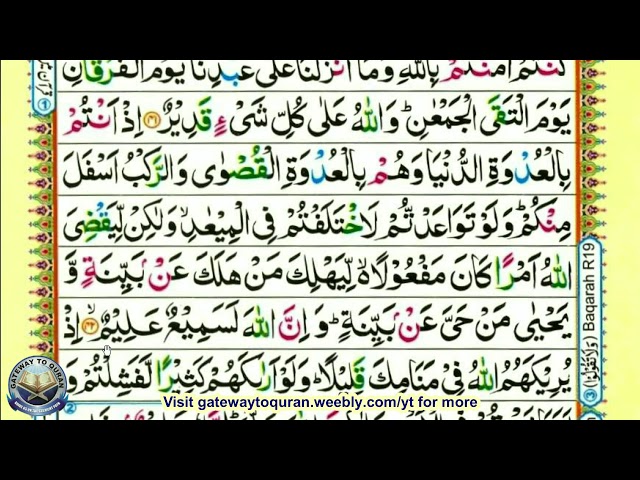 كُنْتُمْ اٰمَنْتُمْ بِاللّٰهِ وَمَاۤ اَنْزَلْنَا عَلٰى عَبْدِنَا يَوْمَ الْفُرْقَانِ
يَوْمَ الْتَقَى الْجَمْعٰنِ ؕ وَاللّٰهُ عَلٰى كُلِّ شَىْءٍ قَدِيْرٌ ﴿۴۱﴾ اِذْ اَنْتُمْ
بِالْعُدْوَةِ الدُّنْيَا وَهُمْ بِالْعُدْوَةِ الْقُصْوٰى وَالرَّكْبُ اَسْفَلَ
مِنْكُمْ ؕ وَلَوْ تَوَاعَدْتُّمْ لَاخْتَلَفْتُمْ فِى الْمِيْعٰدِ ۙ وَلٰكِنْ لِّيَقْضِىَ
اللّٰهُ اَمْرًا كَانَ مَفْعُوْلًا ۙ لِّيَهْلِكَ مَنْ هَلَكَ عَنْۢ بَيِّنَةٍ وَّ
يَحْيٰى مَنْ حَىَّ عَنْۢ بَيِّنَةٍ ؕ وَاِنَّ اللّٰهَ لَسَمِيْعٌ عَلِيْمٌ ۙ﴿۴۲﴾ اِذْ
يُرِيْكَهُمُ اللّٰهُ فِىْ مَنَامِكَ قَلِيْلًا ؕ وَلَوْ اَرٰىكَهُمْ كَثِيْرًا لَّفَشِلْتُمْ وَ
Visit gatewaytoquran.weebly.com/yt for more
GATEWAY TO QURAN
Baqarah R19